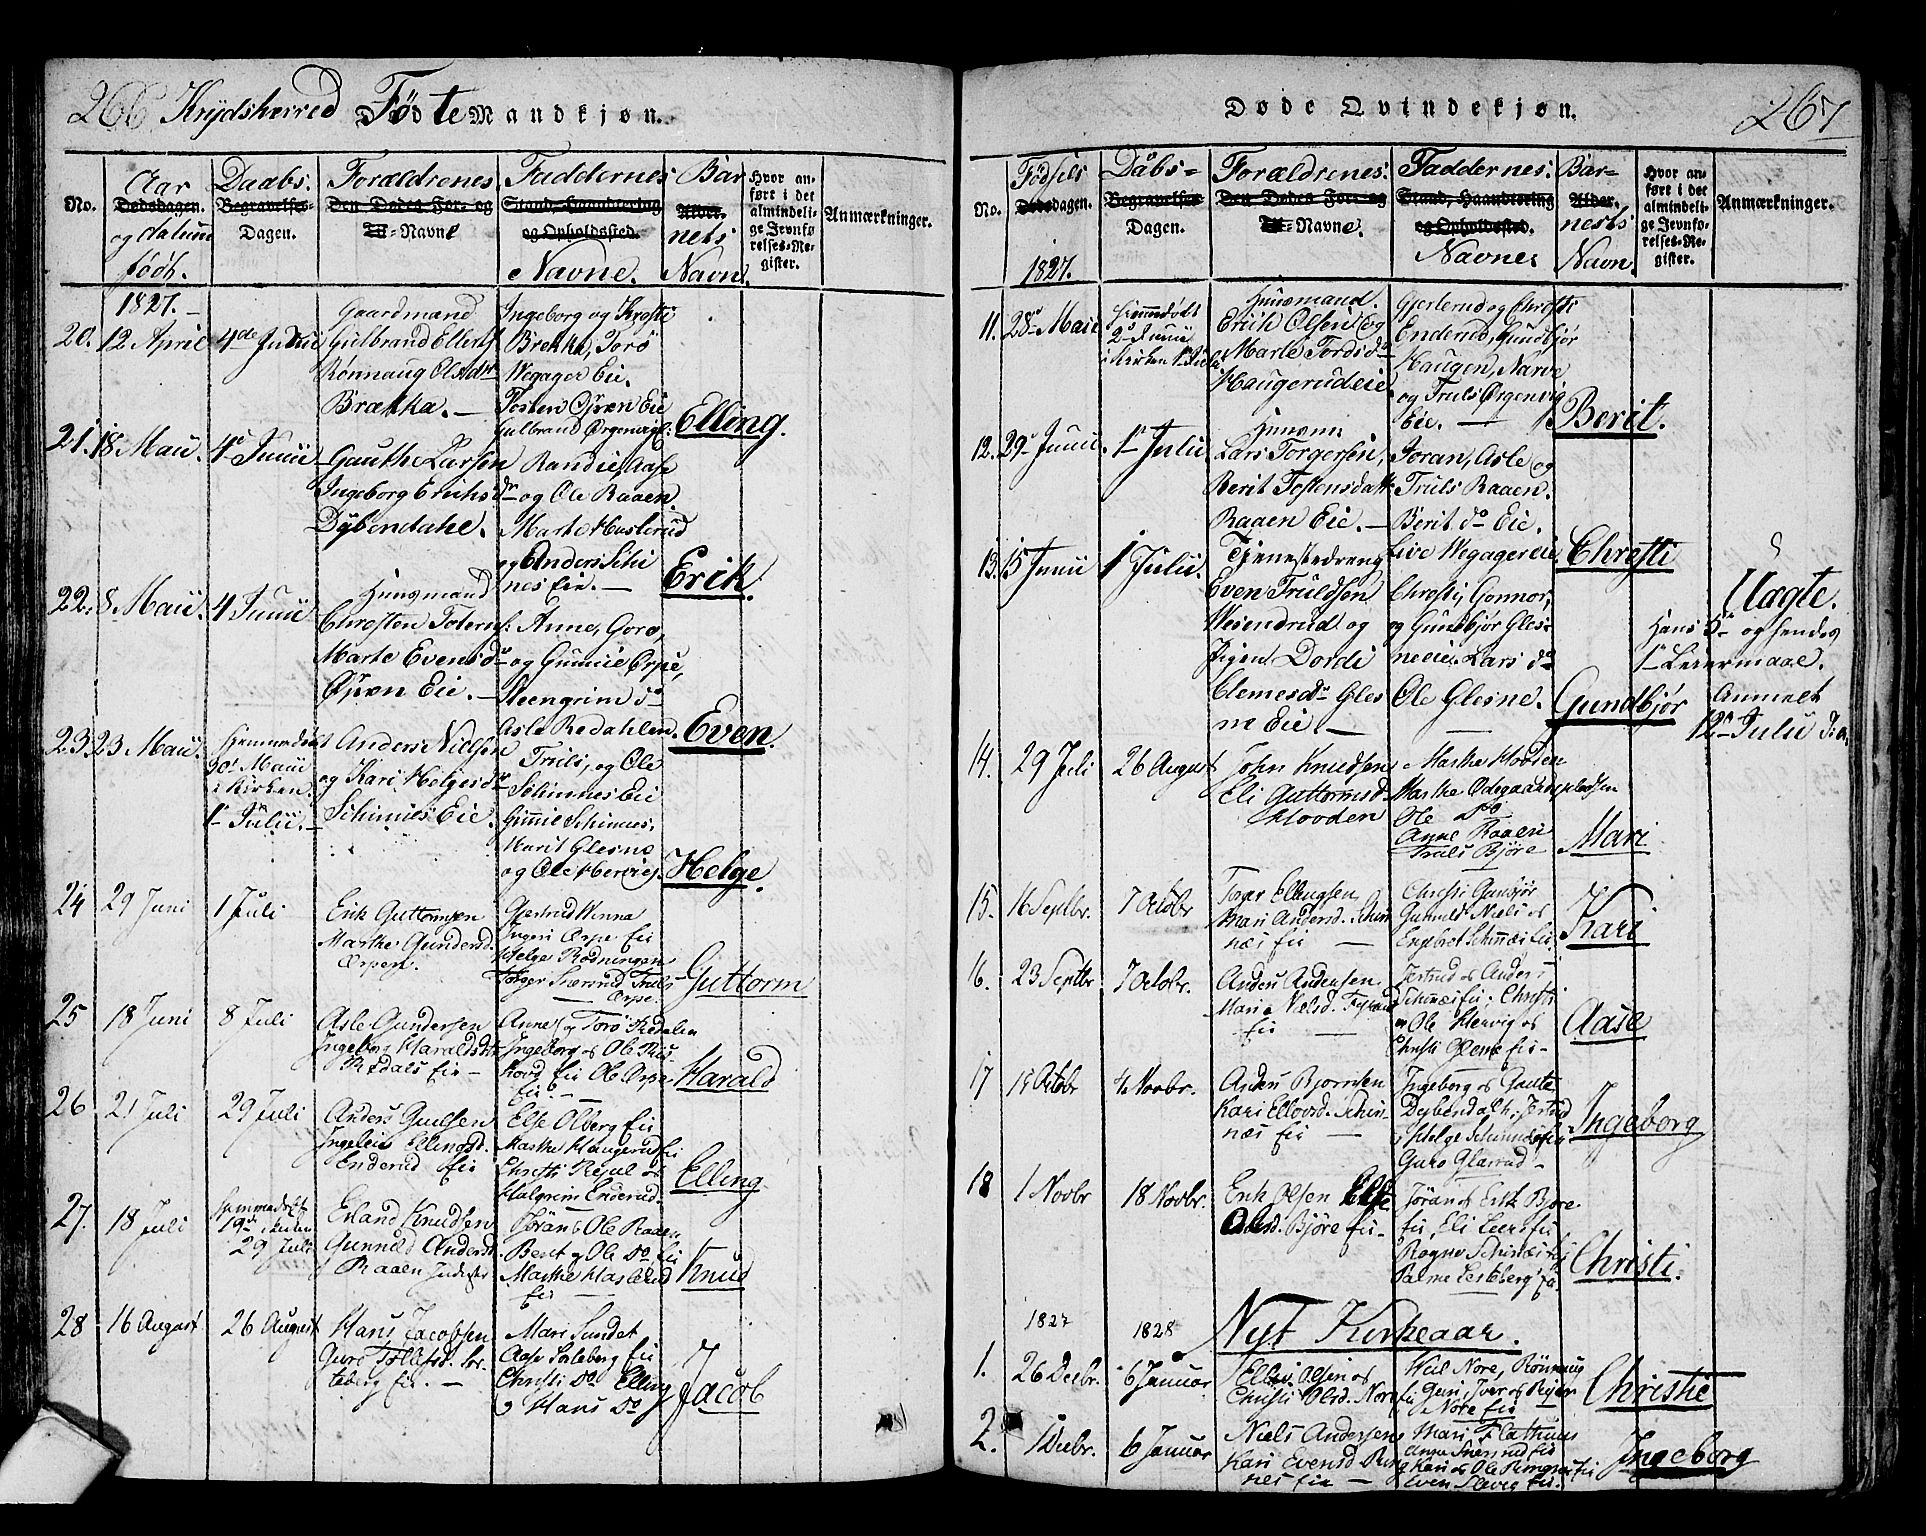 266 Krydsherred Fødte Mandkjøn.
No.
Aar
Dødsdagen.
og datum
født.
Daabs-
Begravelses-
Dagen.
Forældrenes
Den Dødes For- og
Til-Navne
Faddernes
Stand, Haandtering
og Opholdssted.
Navne.
Bar
Alder.
nets
Navn.
Hvor an-
ført i det
almindeli-
ge Jevnfø-
relses-Re-
gister.
Anmærkninger.
1827.
20. 12 April 4de Junii
Gaardmand
Gulbrand Ellens
Rønnaug Olsdtr
Brækka.
Ingeborg og Kresti
Brekka, Torø
Wegager Eie.
Tosten Opren Eie
Gulbrand Ørgenvig
Elling.
21. 18 Maii. 4de Junii
Gauthe Larsen
Ingeborg Erichsdr
Dybendahl.
Randie, Aase
og Ole Raaen.
Marte Haslerud
og Anders Schi
nes Eie.
Erik.
22. 8 Maii. 4 Junii
Huusmand
Christen Tolens:
Marte Evensdr
Opren Eie.
Anne, Goro,
og Gunnie Ørpe,
Steengrim do
Asle Redahlen.
Even.
23. 23 Maii.
Hjemmedøbt
30te Maii
i Kirken.
1te Julii.
Anders Nielsen
og Kari Helgesdr
Schinnes Eie.
Truls, og Ole
Schinnes Eie
Gunnie Schinnes,
Marit Glesne
og Ole Hervig.
Helge.
24 29 Juni 1 Juli
Erik Guttormsen
Marthe Gundersd.
Ørpen.
Gjertrud Winna
Ingeri Ørpe Eie
Helge Rødningen
Torger Snersrud Truls
Ørpe.
Guttorm
25 18 Juni 8 Juli
Asle Gundersen
Ingeborg Haraldsdtr
Rædals Eie
Anne og Torø Redalen
Ingeborg og Ole Rus-
kovd Eie Ole Ørpe
Eie.
Harald
26 21 Juli 29 Juli
Anders Gulsen
Ingeleiv Ellingsd.
Enderud Eie
Else Olberg Eie
Marthe Haugerud Eie
Christi Resul og
Halgrim Enderud.
Elling
27. 18 Juli
Hjemmedøbt
19de i kirken
29 Juli
Erland Knudsen
Gunnild Andersd.
Raaen Inderster
Jøran & Ole Raaen
Berit og Ole Do. Eie
Marthe Haslerud
Eie
Knud
28 16 August 26 August
Hans Jacobsen
Guro Tollefsd. Sor-
teberg Eie.
Mari Sundet
Aase Sorteberg Eie
Christi Do Elling
& Hans Do
Jacob
Døde Qvindekjøn. 267
No.
Fødsels
Dødsdagen.
1827.
Dåbs-
Begravelses
Dagen.
Forældrenes.
Den Dødes For- og
Til-Navne.
Faddernes.
Stand, Haandtering
og Opholdssted.
Navne.
Bar-
Alder.
nests
Navn.
Hvor an-
ført i det
almindeli-
ge Jevnfø-
relses-Re-
gister.
Anmærkninger.
11. 28de Maii
Hjemmedøbt
2de Junii
i Kirken 1te Julii
Huusmand.
Erich Olsen og
Marte Tordsdr
Haugerudeie
Gjerterud og Christi
Enderud, Gundbjør
Haugen, Narve
og Truls Ørgenvig
Eie.
Berit.
12. 29de Junii 1te Julii
Huusm:
Lars Torgersen,
Berit Tostensdatt
Raaen Eie.
Joran, Asle og
Truls Raaen.
Berit do Eie.
Christi
13. 15 Junii 1 Julii.
Tjenestedreng
Even Trulsen
Wesendrud og
Pigen Dordi
Clemesdr Gles
ne Eie.
Live Wegagereie
Christi, Gonnor,
og Gundbjør Gles-
neeie. Lars do
Ole Glesne.
Gundbjør
Uægte.
Hans 5te og hendes
1te Leiermaal.
Anmelt
12te Julii
14. 29 Juli 26 August
John Knudsen
Eli Guttormsd.
Mooden
Marthe Mooden
Marthe Ødegaardspladsen
Ole Do
Anne Raaen
Truls Bjøre
Mari
15. 16 Septbr. 7 Octobr
Torger Ellingsen
Mari Andersd. Schin-
næs Eie
Christi Gunbjør
Gunnild Niels og
Engebret Schinnæs Eie.
Kari
16. 23 Septbr 7 Octobr.
Anders Andersen
Maria Nielsd.
Eie
Jertrud & Anders
Schinæs Eie. Christi
& Ole Hervig og
Christi Glesne Eie-
Aase
17 15 Octobr 4 Novbr.
Anders Bjørnsen
Kari Ellovsd. Schin-
næs Eie
Ingeborg & Gaute
Dybendalh, Jertrud
& Helge Schinnæs Eie
Guro Glesrud-
Ingeborg
18 1 Novbr 18 Novbr.
Erik Olsen Else
Olsd. Bjøre Eie-
Jøran & Erik Bjøre
Eie, Eli Leers Eie
Ragne Schinæs Eie
Palme Sorteberg Eie
Christi.
1827 1828 Nyt Kirkeaar.
1. 26 Decbr. 6 Januar
Ellev Olsen &
Christi Olsd. Nore Eie
Guri, Iver & Reier
Nore Eie
Christie
2. 1 Decbr. 6 Januar
Niels Andersen
Kari Evensd Ring-
nes Eie
Mari Flathuus
Anne Snersrud Eie
Kari & Ole Ringnes Eie
Even Slevig Eie.
Ingeborg